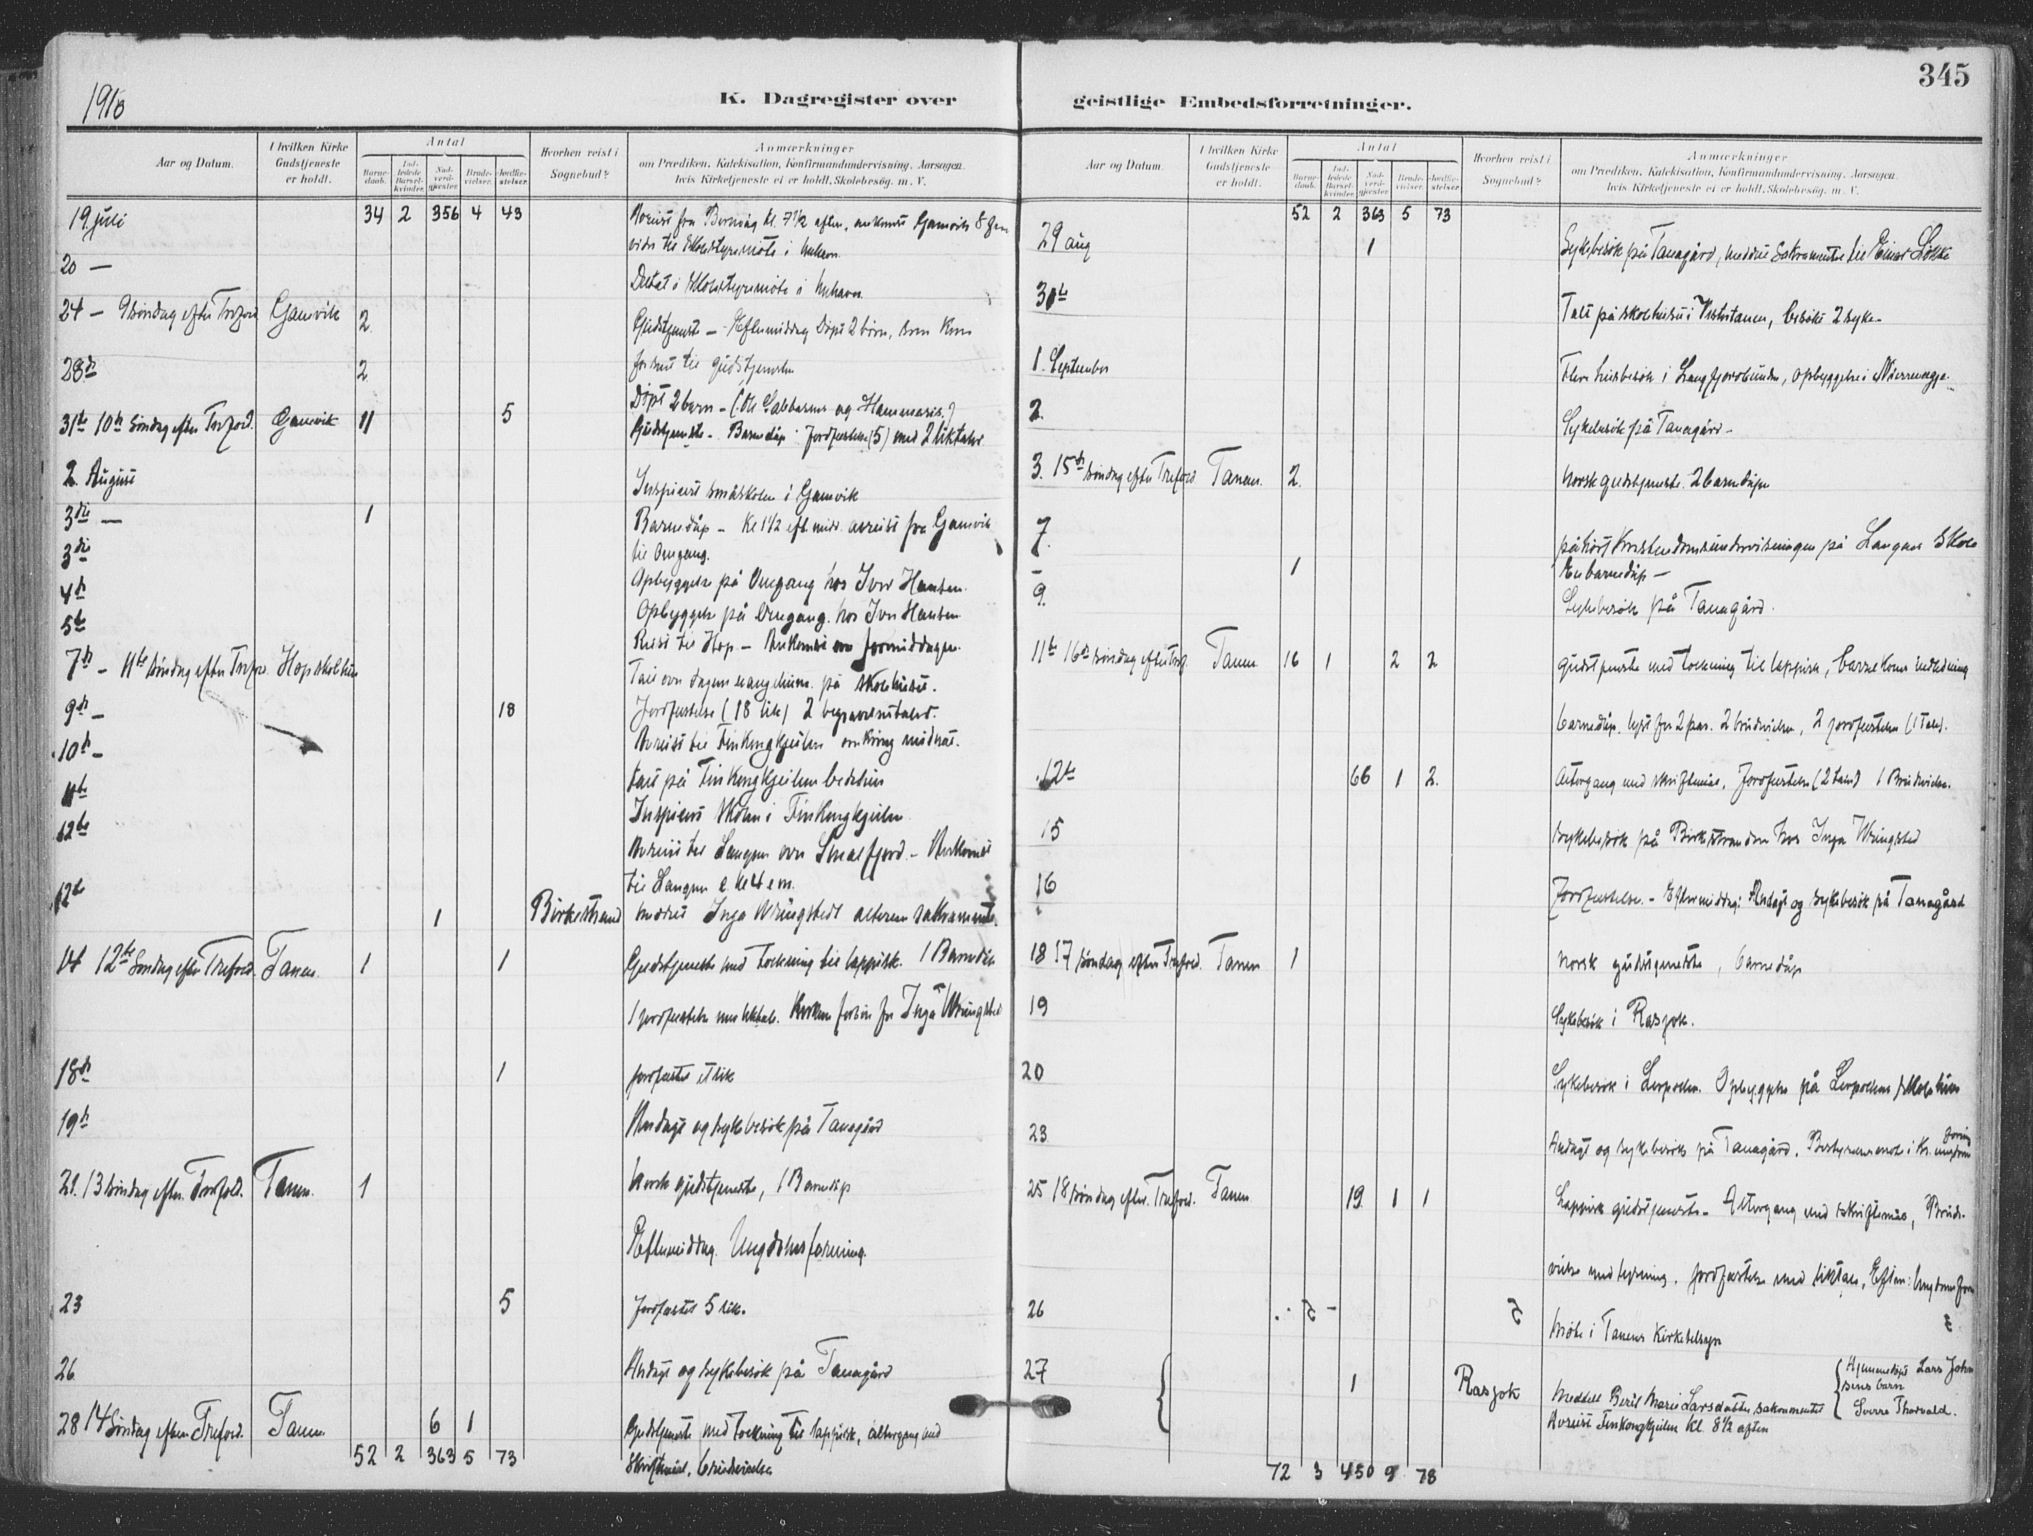 1910
K. Dagregister over
geistlige Embedsforretninger.
345
Aar og Datum.
I hvilken Kirke Gudstjeneste er holdt.
Antal
Barne-daab.
Ind-ledede Barsel-kvinder.
Nad-verd-gjester.
Brude-vielser.
Jordfæ-stelser.
Hvorhen reist i Sognebud?
Anmærkninger
om Prædiken, Katekisation, Konfirmandundervisning, Aarsagen,
hvis Kirketjeneste ei er holdt, Skolebesøg, m. V.
19 juli 34 2 356 4 43 Avreist fra kl. 7½ aften, ankomst Gamvik 8
videre til skolestyremøte i Mehavn
20 — Deltat i skolestyremøte i Mehavn
24 — 9 søndag efter Trefold Gamvik 2 Gudstjeneste – Eftermiddag Døpt 2 børn, som kom
for sent til gudstjenesten
28de 2 Døpt 2 barn – (Ole og )
31te 10de Søndag efter Trefold. Gamvik 11 5 Gudstjeneste – Barnedåp Jordfæstelse (5) med 2 liktaler
2. August Inspicert småskolen i Gamvik
3die — 1 Barnedåp – Kl 1½ eft. mid. avreist fra Gamvik
3die til Omgang.
4de Opbyggelse på Omgang hos Iver Hansen.
5te Opbyggelse på Omgang hos Iver Hansen
Reist til Hop – Ankomst om formiddagen.
7de – 11te søndag efter Trefold. Hop skolehus Tale over dagens evangelium på skolehuset.
9de – 18 Jordfæstelse (18 lik) 2
10de – Avreist til Finkongkjeilen omkring midnat.
11te tale på Finkongkjeilen bedehus
Inspicert skolen i Finkongkjeilen
12te Avreist til Langnes over Smalfjord – Ankomst
til Langnes kl 4 em.
12te 1 Birkestrand meddelt Inga Wringstedt alterens sakramente.
14 12te Søndag efter Trefold. Tanen. 1 1 Gudstjeneste med tolkning til lappisk. 1 Barnedåp
1 jordfæstelse med liktale. Kirkens forbøn for Inga Wringsted
18de 1 jordfæstet et lik
19de Andagt og sykebesøk på Tanagård
21. 13 søndag efter. Trefold. Tanen. 1 Norsk gudstjeneste, 1 Barnedåp
Eftermiddag. Ungdomsforening.
23 5 Jordfæstet 5 lik.
26 Andagt og sykebesøk på Tanagård
28 14 Søndag efter Trefold. Tanen 6 1 Gudstjeneste med tolkning til lappisk, altergang med
skriftemål, brudevielse
52 2 363 5 73
Aar og Datum.
I hvilken Kirke Gudstjeneste er holdt.
Antal
Barne-daab.
Ind-ledede Barsel-kvinder.
Nad-verd-gjester.
Brude-vielser.
Jordfæ-stelser.
Hvorhen reist i Sognebud?
Anmærkninger
om Prædiken, Katekisation, Konfirmandundervisning, Aarsagen,
hvis Kirketjeneste ei er holdt, Skolebesøg, m. V.
52 2 363 5 73
29 aug 1 Sykebesøk på Tanagård, meddelt sakramentet til Einar Løkke
31te Tale på skolehuset i Vestertanen, besøkt 2 syke –
1. September Flere husbesøk i Langfjordbunden, opbyggelse i
2. Sykebesøk på Tanagård –
3. 15de søndag efter Trefold. Tanen. 2. Norsk gudstjeneste. 2 barnedåp
7. påhørt kristendomsundervisningen på Langnes skole
– 1 En barnedåp –
9. Sykebesøk på Tanagård.
11te 16de søndag efter Tref. Tanen 16 1 2 2 gudstjeneste med tolkning til lappisk, barselkone indledning
barnedåp, lyst for 2 par. 2 brudevielser, 2 jordfæstelser (1 tale).
12te 66 1 2. Altergang med skriftemål, Jordfæstelse (2 taler) 1 Brudevielse.
15 sykebesøk på Birkestranden hos Inga Wringsted
16 Jordfæstelse. – Eftermiddag: Andagt og sykebesøk på Tanagård
18 17 søndag efter Trefold. Tanen 1 Norsk gudstjeneste, barnedåp
19 Sykebesøk i Rasjok.
20 Sykebesøk i Leirpollen. Opbyggelse på Leirpollens skolehus
23 Andagt og sykebesøk på Tanagård. Bestyrermøte i Kr. ungdomsforening
25 18 søndag efter. Trefold. Tanen 19 1 1 Lappisk gudstjeneste – Altergang med skriftemål, Brude-
vielse med lysning. jordfæstelse med liktale. Eften: Ungdomsforen
26 Møte i Tanens kirketilsyn
27 1 Rasjok Meddelt Berit Marie Larsdatter sakramentet { Hjemmedøpt Lars Johnsens barn Sverre Thorvald.
Avreist Finkongkjeilen kl 8½ aften
72 3 450 9 78